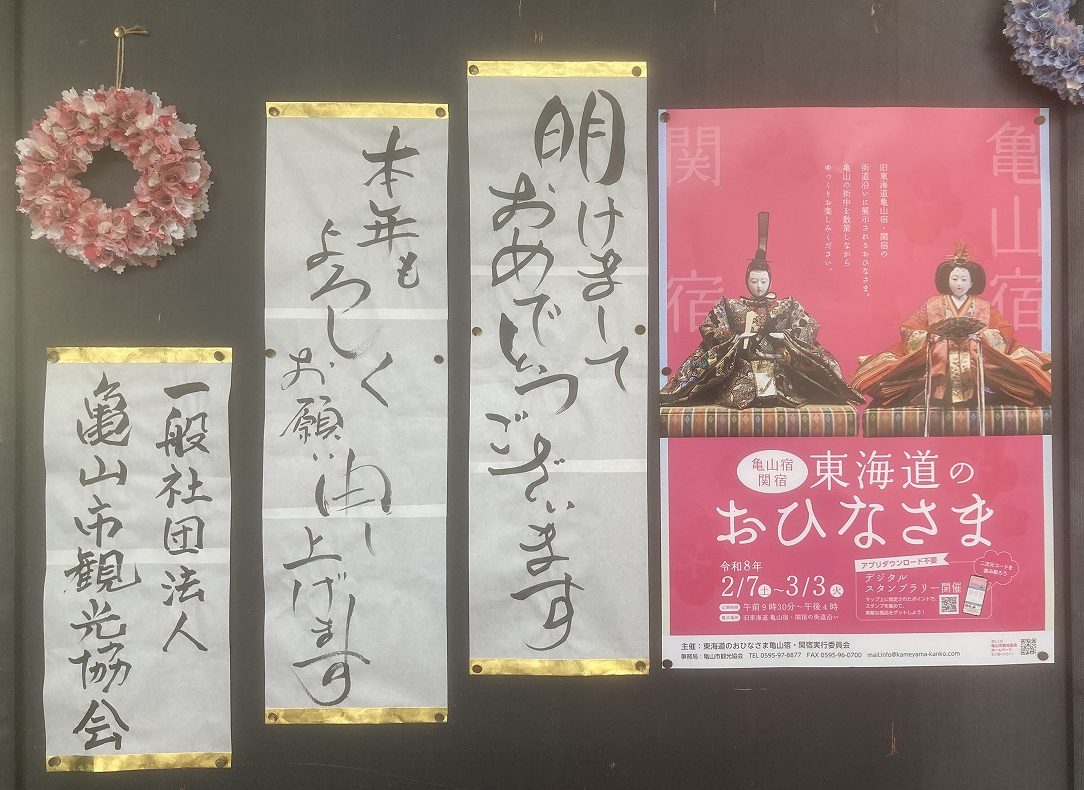 明けまして
おめでとうございます
本年も
よろしく
お願い申し
上げます
一般社団法人
亀山市観光協会
亀山宿
関宿
旧東海道亀山宿・関宿の
街道沿いに展示されるおひなさま。
亀山の街中を散策しながら
ゆっくりお楽しみください。
亀山宿
関宿
東海道の
おひなさま
令和8年
2/7土~3/3火
午前9時30分~午後4時
旧東海道 亀山宿・関宿の街道沿い
アプリダウンロード不要
デジタル
スタンプラリー開催
マップ上に指定されたポイントで、
スタンプを集めて、
素敵な商品をゲットしよう!
二次元コードを
読み取ろう
主催:東海道のおひなさま亀山宿・関宿実行委員会
事務局:亀山市観光協会 TEL 0595-97-8877 FAX 0595-96-0700 mail:info@kameyama-kanko.com